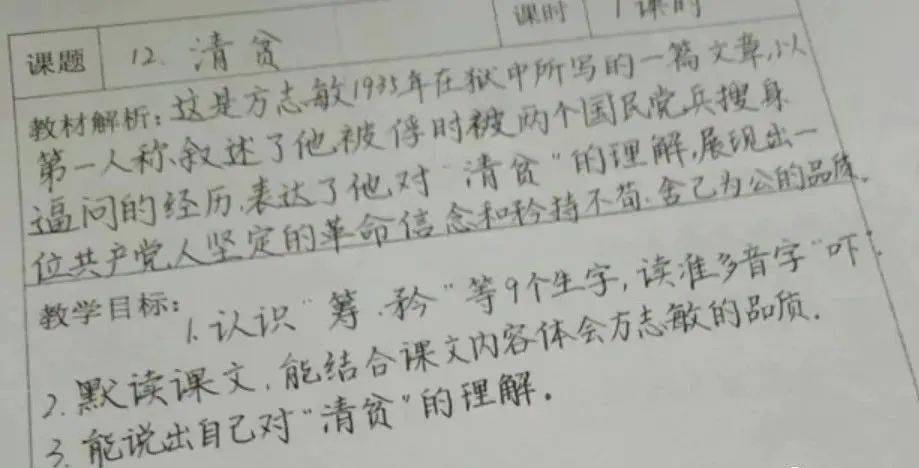 课时 1课时
课题 12. 清贫
教材解析：这是方志敏1935年在狱中所写的一篇文章，以
第一人称、叙述了他被俘时被两个国民党兵搜身
逼问的经历，表达了他对“清贫”的理解，展现出一
位共产党人坚定的革命信念和矜持不苟、舍己为公的品质。
教学目标：
1. 认识“筹、矜”等9个生字，读准多音字“吓”。
2. 默读课文，能结合课文内容体会方志敏的品质.
3. 能说出自己对“清贫”的理解。